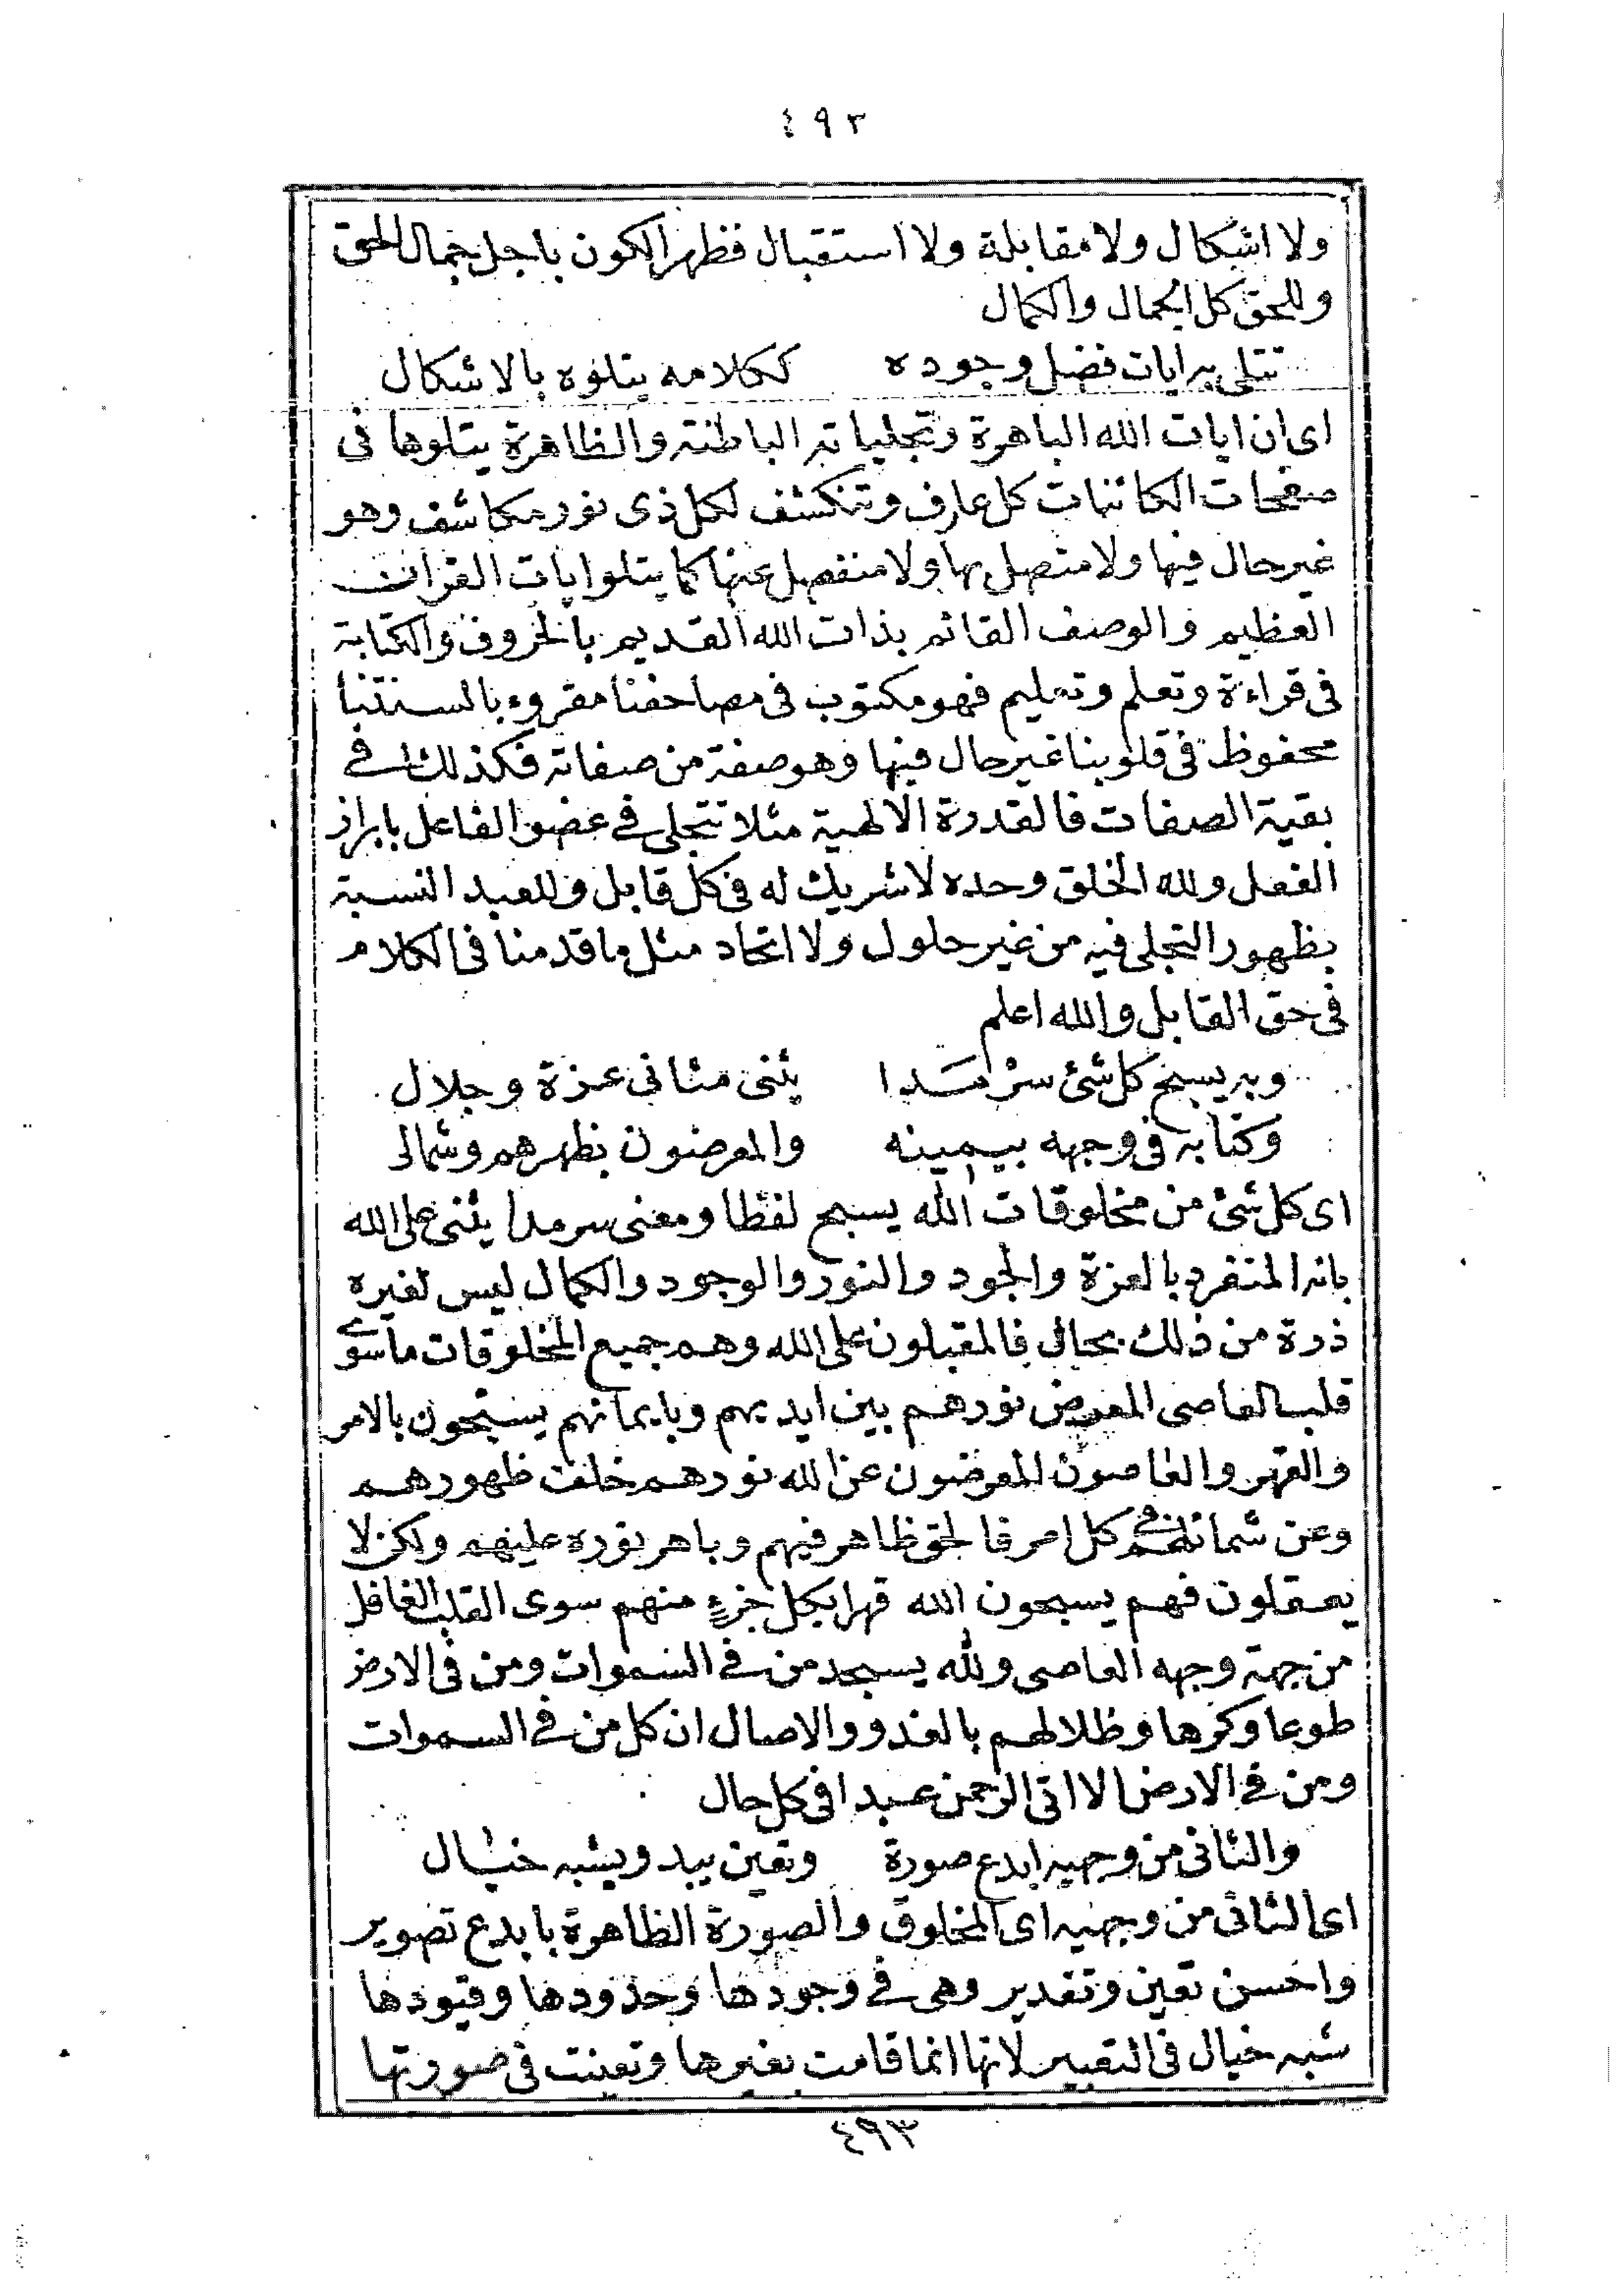 ٤٩٣
ولا اشكال ولا مقابلة ولا استقبال فظهر الكون باجل جمال الحق
وللحق كل الجمال والكمال
تتلى به ايات فضل وجوده ككلامه يتلوه بالاشكال
اى ان ايات الله الباهرة وتجلياته الباطنة والظاهرة يتلوها فى
صفحات الكائنات كل عارف وتنكشف لكل ذى نور مكاشف وهو
غير حال فيها ولا متصل بها ولا منفصل عنها كما يتلو ايات القران
العظيم والوصف القائم بذات الله القديم بالحروف والكتابة
فى قراءة وتعلم وتعليم فهو مكتوب فى مصاحفنا مقروء بالسنتنا
محفوظ فى قلوبنا غير حال فيها وهو صفة من صفاته فكذلك فى
بقية الصفات فالقدرة الالهية مثلا تتجلى فى عضو الفاعل بابراز
الفعل ولله الخلق وحده لا شريك له فى كل قابل وللعبد النسبة
بظهور التجلى فيه من غير حلول ولا اتحاد مثل ما قدمنا فى الكلام
فى حق القابل والله اعلم
وبه يسبح كل شئ سرْمَدا يثنى مثانى عزة وجلال
وكتابه فى وجهه بيمينه والمعرضون بظهرهم وشمالى
اى كل شئ من مخلوقات الله يسبح لفظا ومعنى سرمدا يثنى على الله
بانه المنفرد بالعزة والجود والنور والوجود والكمال ليس لغيره
ذرة من ذلك بحال فالمقبلون على الله وهم جميع المخلوقات ما سوى
قلب العاصى المعرض نورهم بين ايديهم وبايمانهم يسبحون بالامر
والقهر والعاصون المعرضون عن الله نورهم خلف ظهورهم
وعن شمائلهم فى كل امر فالحق ظاهر فيهم وباهر نوره عليهم ولكن لا
يعقلون فهم يسبحون الله قهرا بكل جزءٍ منهم سوى القلب الغافل
من جهة وجهه العاصى ولله يسجد من فى السموات ومن فى الارض
طوعا وكرها وظلالهم بالغدو والاصال ان كل من فى السموات
ومن فى الارض الا اتى الرحمن عبدا فى كل حال
والثانى من وجهيه ابدع صورة وتعين يبد ويشبه خيال
اى الثانى من وجهيه اى المخلوق والصورة الظاهرة بابدع تصوير
واحسن تعين وتقدير وهى فى وجودها وحدودها وقيودها
شبه خيال فى التعبير لانها انما قامت بغيرها وتعينت فى صورتها
٤٩٣